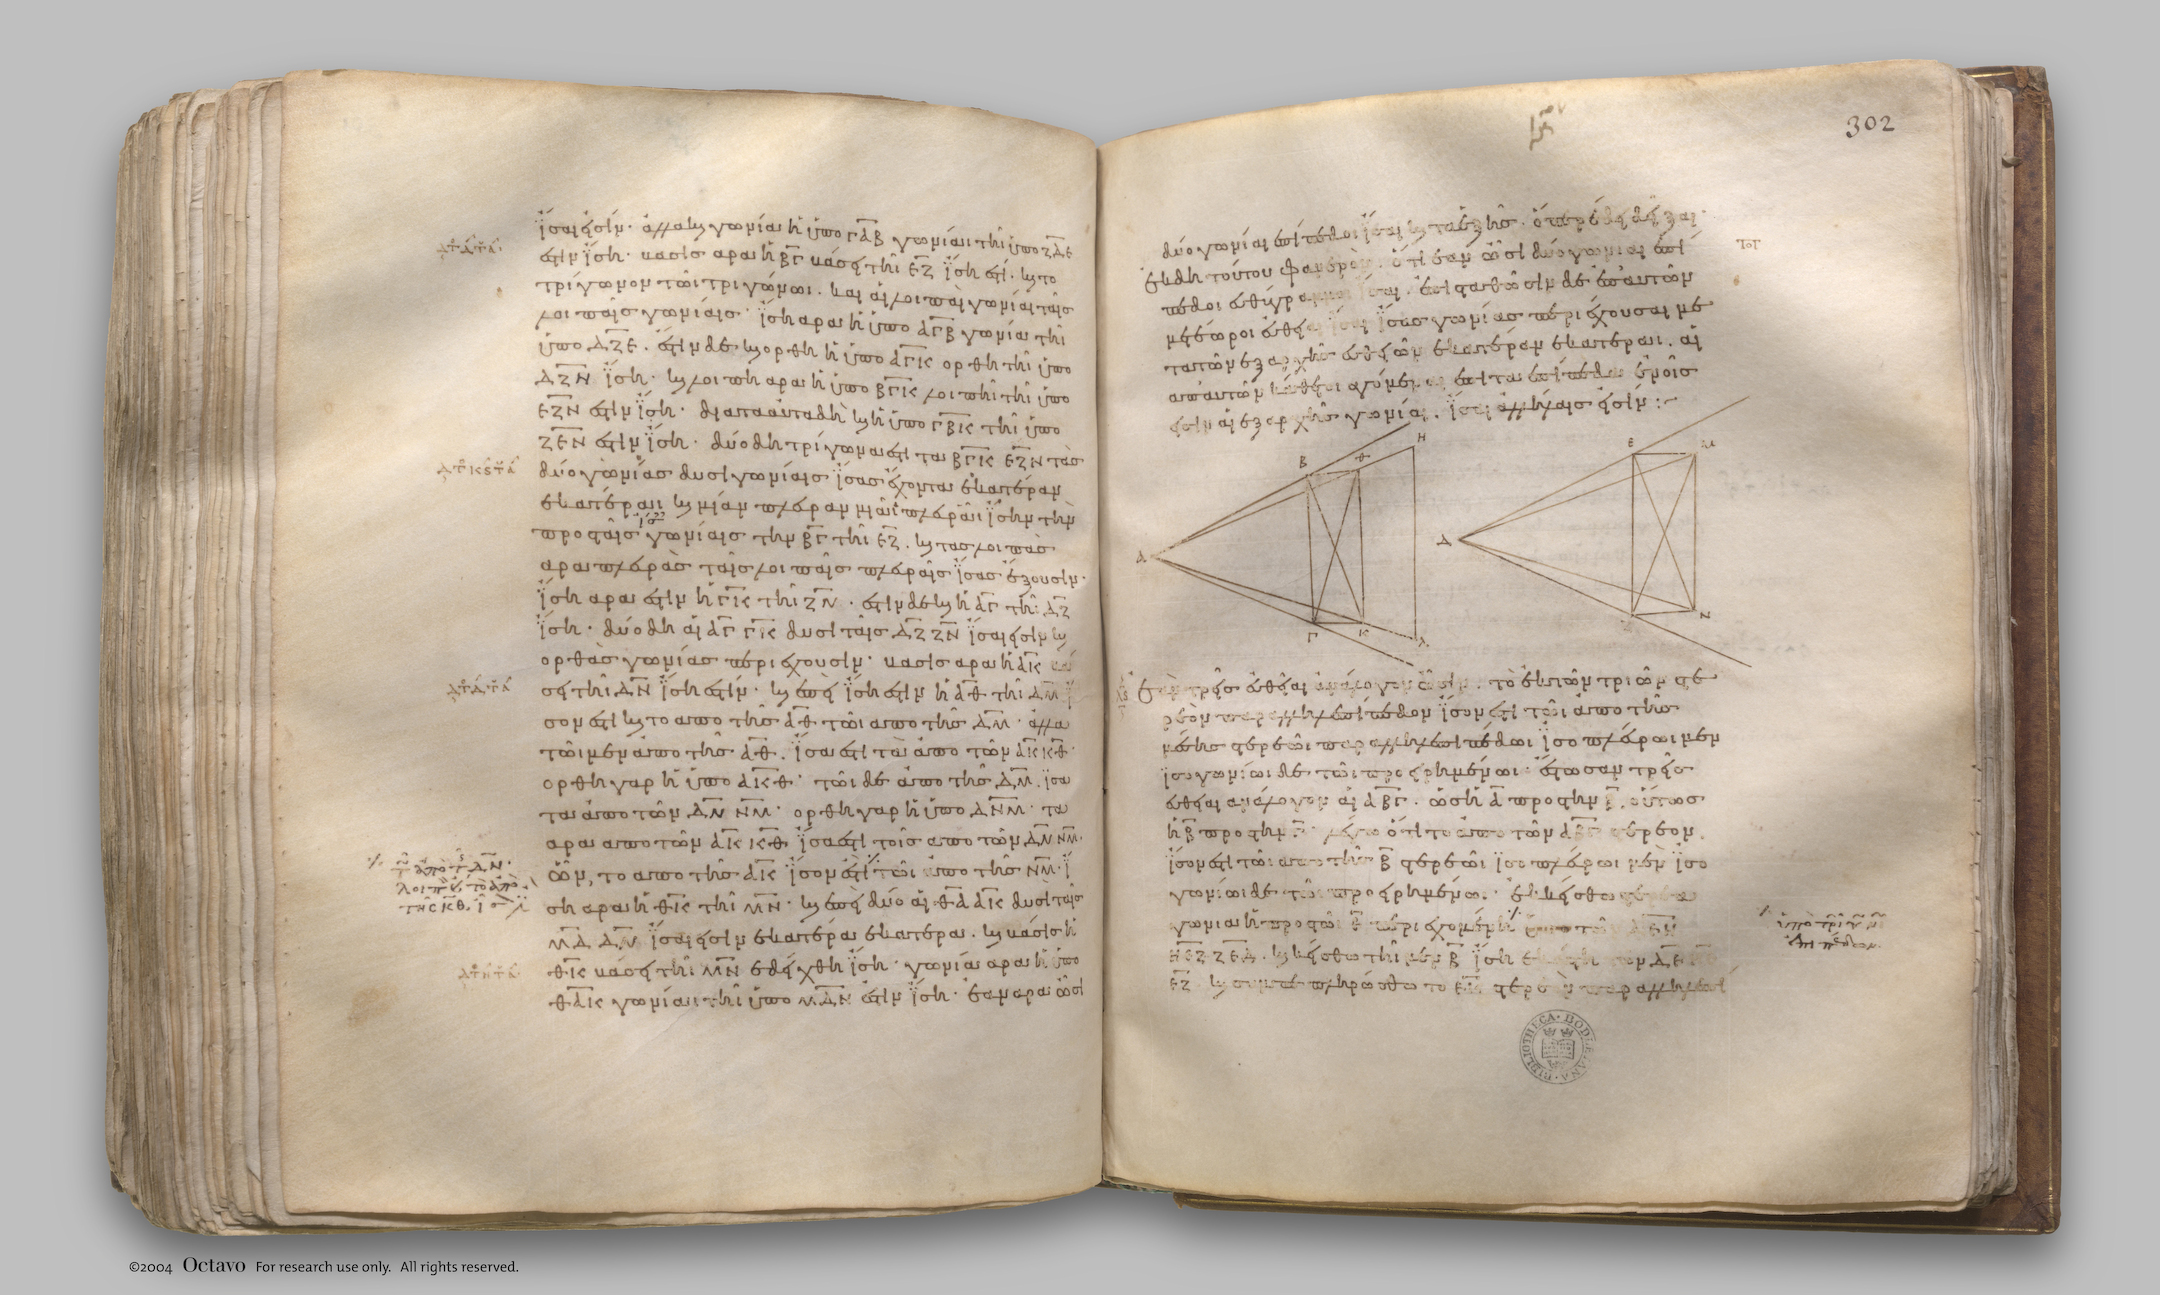 ἴσαι εἰσίν· ἀλλὰ καὶ γωνία ἡ ὑπο ΓΑΒ γωνίαι τῆι ὑπο ΖΔΕ
ἐστὶν ἴση· βάσις ἄρα ἡ ΒΓ βάσει τῆι ΕΖ ἴση ἐστί· καὶ το
τρίγωνον τῶι τριγώνωι· καὶ αἱ λοιπαὶ γωνίαι ταῖς
λοιπαῖς γωνίαις· ἴση ἄρα ἡ ὑπο ΑΓΒ γωνία τῆι
ὑπο ΔΖΕ. ἔστιν δε καὶ ὀρθη ἡ ὑπο ΑΓΚ ὀρθη τῆι ὑπο
ΔΖΝ ἴση· καὶ λοιπη ἄρα ἡ ὑπο ΒΓΚ λοιπῆι τῆι ὑπο
ΕΖΝ ἐστὶν ἴση· διαταἀυτὰδὴ καὶ ἡ ὑπο ΓΒΚ τῆι ὑπο
ΖΕΝ ἐστὶν ἴση· δύο δη τρίγωνα ἐστι τα ΒΓΚ ΕΖΝ τὰς
δύο γωνίας δυσι γωνίαις ἴσας ἔχοντα ἑκατέραν
ἑκατέραι καὶ μίαν πλευραν μιᾶι πλευρᾶι ἴσην τὴν
προς ταῖς γωνίαις την ΒΓ τῆι ΕΖ. καὶ τας λοιπὰς
ἄρα πλευρὰς ταῖς λοιπαῖς πλευραῖς ἴσας ἕξουσιν·
ἴση ἄρα ἐστὶν ἡ ΓΚ τῆι ΖΝ· ἔστιν δε καὶ ἡ ΑΓ τῆι ΔΖ
ἴση· δύο δη αἱ ΑΓ ΓΚ δυσι ταῖς ΔΖ ΖΝ ἴσαι εἰσὶν καὶ
ὀρθὰς γωνίας περιέχουσιν· βάσις ἄρα ἡ ΑΚ βά
σει τῆι ΔΝ ἴση ἐστίν· καὶ ἐπεὶ ἴση ἐστὶν ἡ ΑΘ τῆι ΔΜ ἴ
σον ἐστι καὶ το ἀπο τῆς ΑΘ τῶι ἀπο τῆς ΔΜ· ἀλλα
τῶι μεν ἀπο τῆς ΑΘ. ἴσα ἐστι τὰ ἀπο τῶν ΑΚ ΚΘ·
ὀρθη γαρ ἡ ὑπο ΑΚΘ· τῶι δε ἀπο τῆς ΔΜ. ἴσα
τα ἀπο τῶν ΔΝ ΝΜ· ὀρθη γαρ ἡ ὑπο ΔΝΜ· τα
ἄρα ἀπο τῶν ΑΚ ΚΘ ἴσα ἐστι τοῖς ἀπο τῶν ΔΝ ΝΜ·
ὧν, το ἀπο τῆς ΑΚ ἴσον ἐστὶ τῶι ἀπο τῆς ΝΜ· ἴ
ση ἄρα ἡ ΘΚ τῆι ΜΝ· καὶ ἐπεὶ δύο αἱ ΘΑ ΑΚ δυσὶ ταῖς
ΜΔ ΔΝ ἴσαι εἰσὶν ἑκατέρα ἑκατέρα. καὶ βάσις ἡ
ΘΚ βάσει τῆι ΜΝ ἐδείχθη ἴση· γωνία ἄρα ἡ ὑπο
ΘΑΚ γωνίαι τῆι ὑπο ΜΔΝ ἐστὶν ἴση· ἐαν ἄρα ὦσι
302
δύο γωνίαι ἐπίπεδοι ἴσαι καὶ τα ἑξῆς· ὅπερ ἔδει δεῖξαι·
ἐκ δη τούτου φανερὸν· ὅτι ἐαν ὦσι δύο γωνίαι ἐπί
πεδοι εὐθύγραμμοι ἴσαι. ἐπισταθῶσιν δε ἐπ αυτῶν
μετέωροι εὐθεῖαι ἴσαι ἴσας γωνίας περιέχουσαι με
τα τῶν ἐξ αρχῆς εὐθειῶν ἑκατέραν ἑκατέραι. αἱ
ἀπ αὐτῶν κάθετοι αγόμεναι ἐπι τα ἐπίπεδα ἐν οἷς
εἰσιν αἱ ἐξ αρχῆς γωνίαι. ἴσαι ἀλλήλαις εἰσίν :~
Β Θ Η Ε Μ
Α Δ
Γ Κ Λ Ζ Ν
Ἐὰν τρεῖς εὐθεῖαι ἀνάλογον ὦσιν. τὸ ἐκ τῶν τριῶν στε
ρεὸν παραλληλεπίπεδον ἴσον ἐστι τῶι ἀπο τῆς
μέσης στερεῶι παραλληλεπιπέδωι ἰσοπλεύρωι μεν
ἰσογωνίωι δε τῶι προειρημένωι· ἔστωσαν τρεῖς
εὐθεῖαι ανάλογον αἱ Α Β Γ. ὡς ἡ Α προς την Β, οὕτως
ἡ Β προς την Γ· λέγω ὅτι το ἀπο τῶν ΑΒΓ στερεον
ἴσον ἐστι τῶι απο τῆς Β στερεῶι ἰσοπλεύρωι μὲν ἰσο
γωνίωι δε τῶι προειρημένωι· ἐκκείσθω στερεα
γωνια ἡ προς τῶι Ε περιεχομένη ὑπο τῶν ΔΕΗ
ΗΕΖ ΖΕΔ. καὶ κείσθω τῆι μεν Β ἴση ἑκάστη των ΔΕ ΗΕ
ΕΖ. καὶ συμπεπληρώσθω το ΕΚ στερεὸν παραλληλεπί
BIBLIOTHECA BODLEIANA
©2004 Octavo For research use only. All rights reserved.